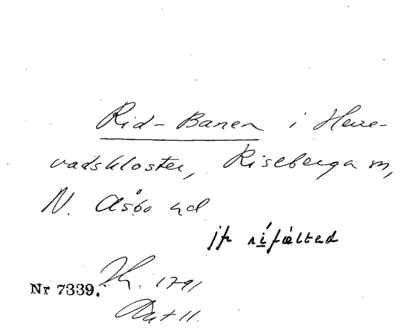 Rid-Banen i Herre-
vadskloster, Riseberga sn,
N. Åsbo hd
jfr rífælted
Nr 7339. Lh. 1791
Akt 11.